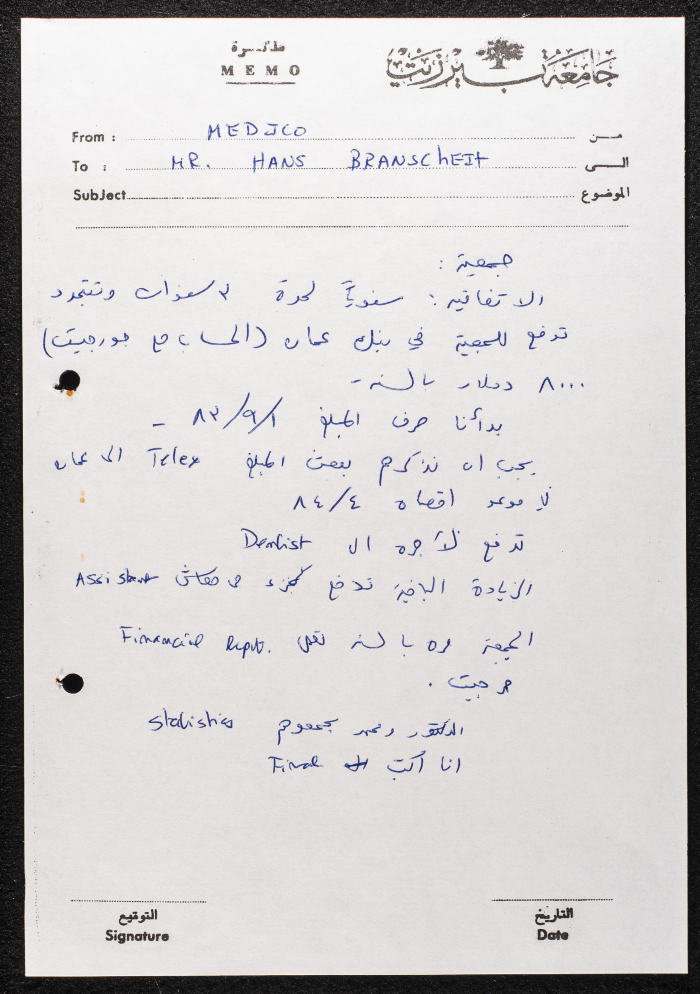 مذكرة
MEMO
جامعة بيرزيت
From : MEDICO من
To : MR. HANS BRANSCHEIT الى
Subject الموضوع
جمعية :
الاتفاقية : سنوياً لمدة ٣ سنوات وتتجدد
تدفع للجمعية في بنك عمان (الحساب مع جورجيت)
٨٠٠٠ دولار بالسنة -
بدأنا صرف المبلغ ٨٣/٩/١ -
يجب ان نذكرهم ببعث المبلغ Telex الى عمان
موعد اقصاه ٨٤/٤
تدفع لأجرة ال Dentist
الزيادة الباقية تدفع كجزء من معاش Assistant
الجمعية مرة بالسنة Financial Rept.
جورجيت .
الدكتور Statistics
انا اكتب Final
التوقيع
Signature
التاريخ
Date